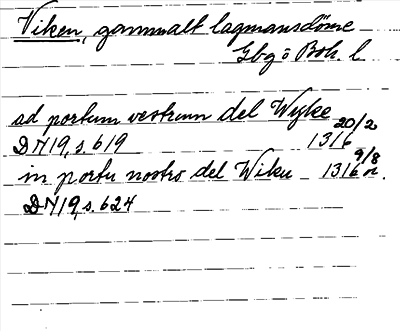 Viken, gammalt lagmansdöme
Gbg o Boh. l.
ad portum vestrum del Wyke 20/2
DN 19, s. 619 1316
in portu nostro del Wiku 1316 9/8 or.
DN 19, s. 624